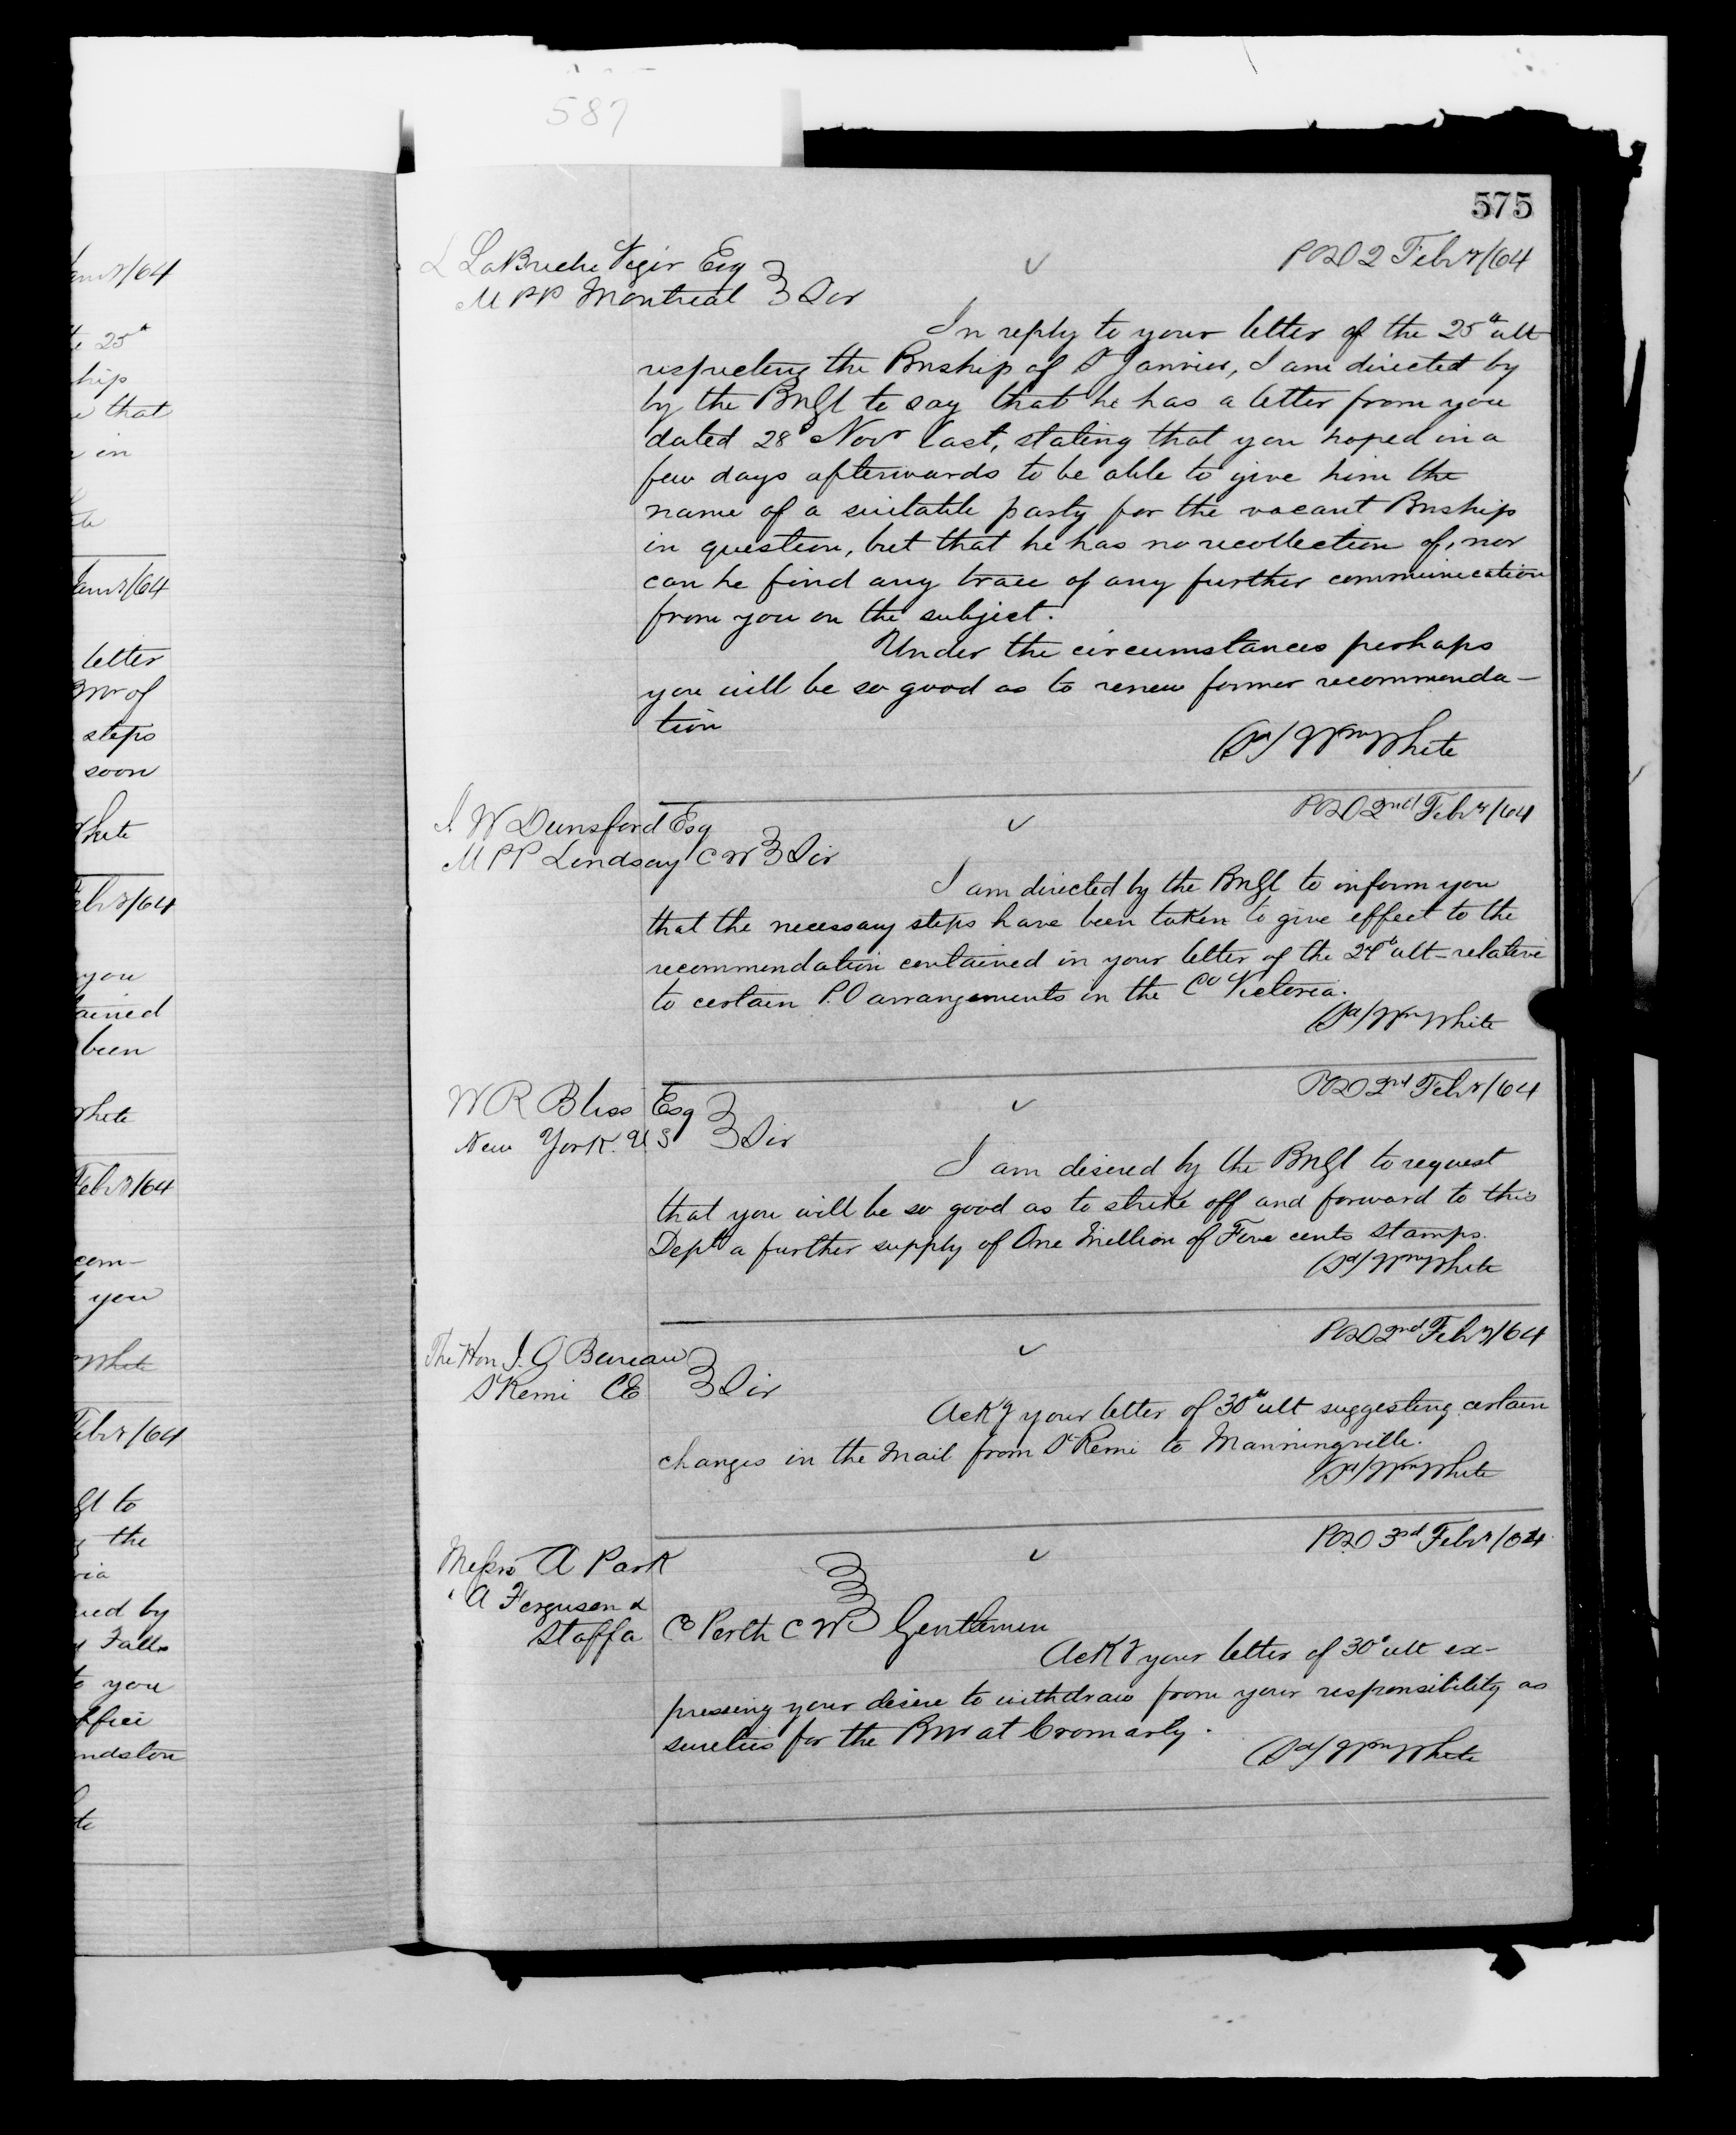 587
575
L LaBruche Viger Esq
M PP Montreal } Sir
POD 2 Febry/64
In reply to your letter of the 25th ult
respecting the Pmship of St Janvier, I am directed by
by the PmGl to say that he has a letter from you
dated 28th Novr last, stating that you hoped in a
few days afterwards to be able to give him the
name of a suitable party for the vacant Pmship
in question, but that he has no recollection of, nor
can he find any trace of any further communication
from you on the subject.
Under the circumstances perhaps
you will be so good as to renew former recommenda-
tion
(Sd) Wm White
POD 2nd Febry/64
J W Dunsford Esq
M PP Lindsay C W } Sir
I am directed by the PmGl to inform you
that the necessary steps have been taken to give effect to the
recommendation contained in your letter of the 24th ult - relative
to certain P.O arrangements in the Co Victoria.
(Sd) Wm White
POD 2nd Febry/64
W R Bliss Esq
New York. U S } Sir
I am desired by the PmGl to request
that you will be so good as to strike off and forward to this
Dept a further supply of One Million of Five cents stamps.
(Sd) Wm White
POD 2nd Febry/64
The Hon J. O Bureau
St Remi CE } Sir
Ackg your letter of 30th ult suggesting certain
changes in the Mail from St Remi to Manningville.
(Sd) Wm White
POD 3rd Febry/64
Messrs A Park
" A Ferguson &
Staffa Co Perth C W } Gentlemen
Ackg your letter of 30th ult ex-
pressing your desire to withdraw from your responsibility as
sureties for the Pmr at Cromarty.
(Sd) Wm White